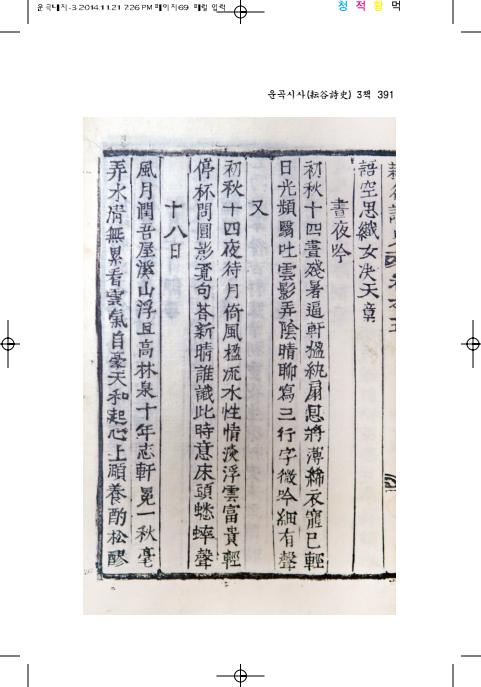 운곡대지-3 2014.11.21 7:26 PM 페이지69 매릴 입력
청 적 황 먹
운곡시사(耘谷詩史) 3책 391
語空思織女決天章
晝夜吟
初秋十四晝殘暑逼軒楹紈扇恩將薄絺衣寵已輕
日光頻翳吐雲影弄陰晴聊寫三行字微吟細有聲
又
初秋十四夜待月倚風楹流水性情淡浮雲富貴輕
停杯問圓影覓句荅新晴誰識此時意床頭蟋蟀聲
十八日
風月潤吾屋溪山浮且高林泉十年志軒冕一秋毫
弄水消無累看雲氣自豪天和起心上頤養酌松醪